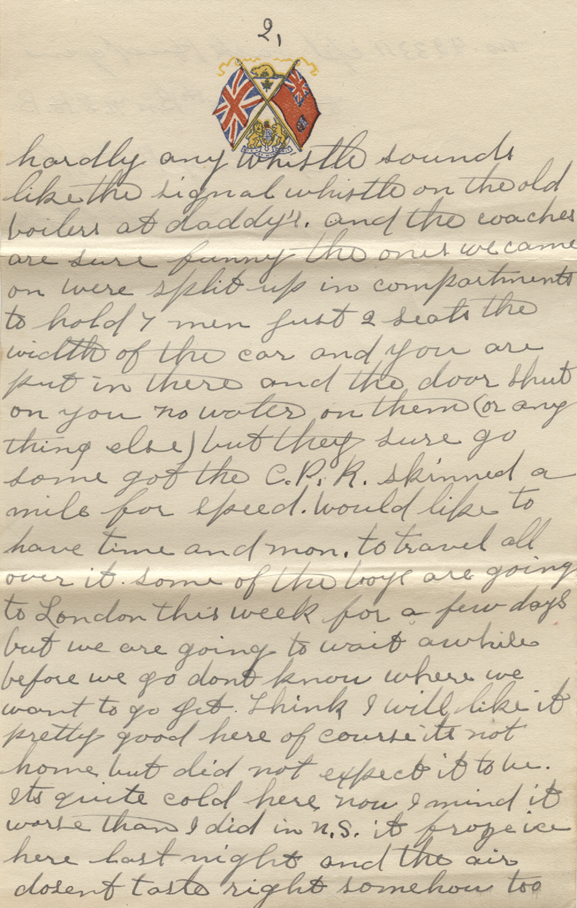 2,
hardly any whistle sounds
like the signal whistle on the old
boilers at daddy's. and the coaches
are sure funny the ones we came
on were split up in compartments
to hold 7 men just 2 seats the
width of the car and you are
put in there and the door shut
on you no water on them (or any
thing else) but they sure go
some got the C.P.R. skinned a
mile for speed. would like to
have time and mon. to travel all
over it. some of the boys are going
to London this week for a few days
but we are going to wait awhile
before we go dont know where we
want to go yet. Think I will like it
pretty good here of course its not
home but did not expect it to be.
Its quite cold here now I mind it
worse than I did in N.S. it froze ice
here last night and the air
dosent taste right somehow too